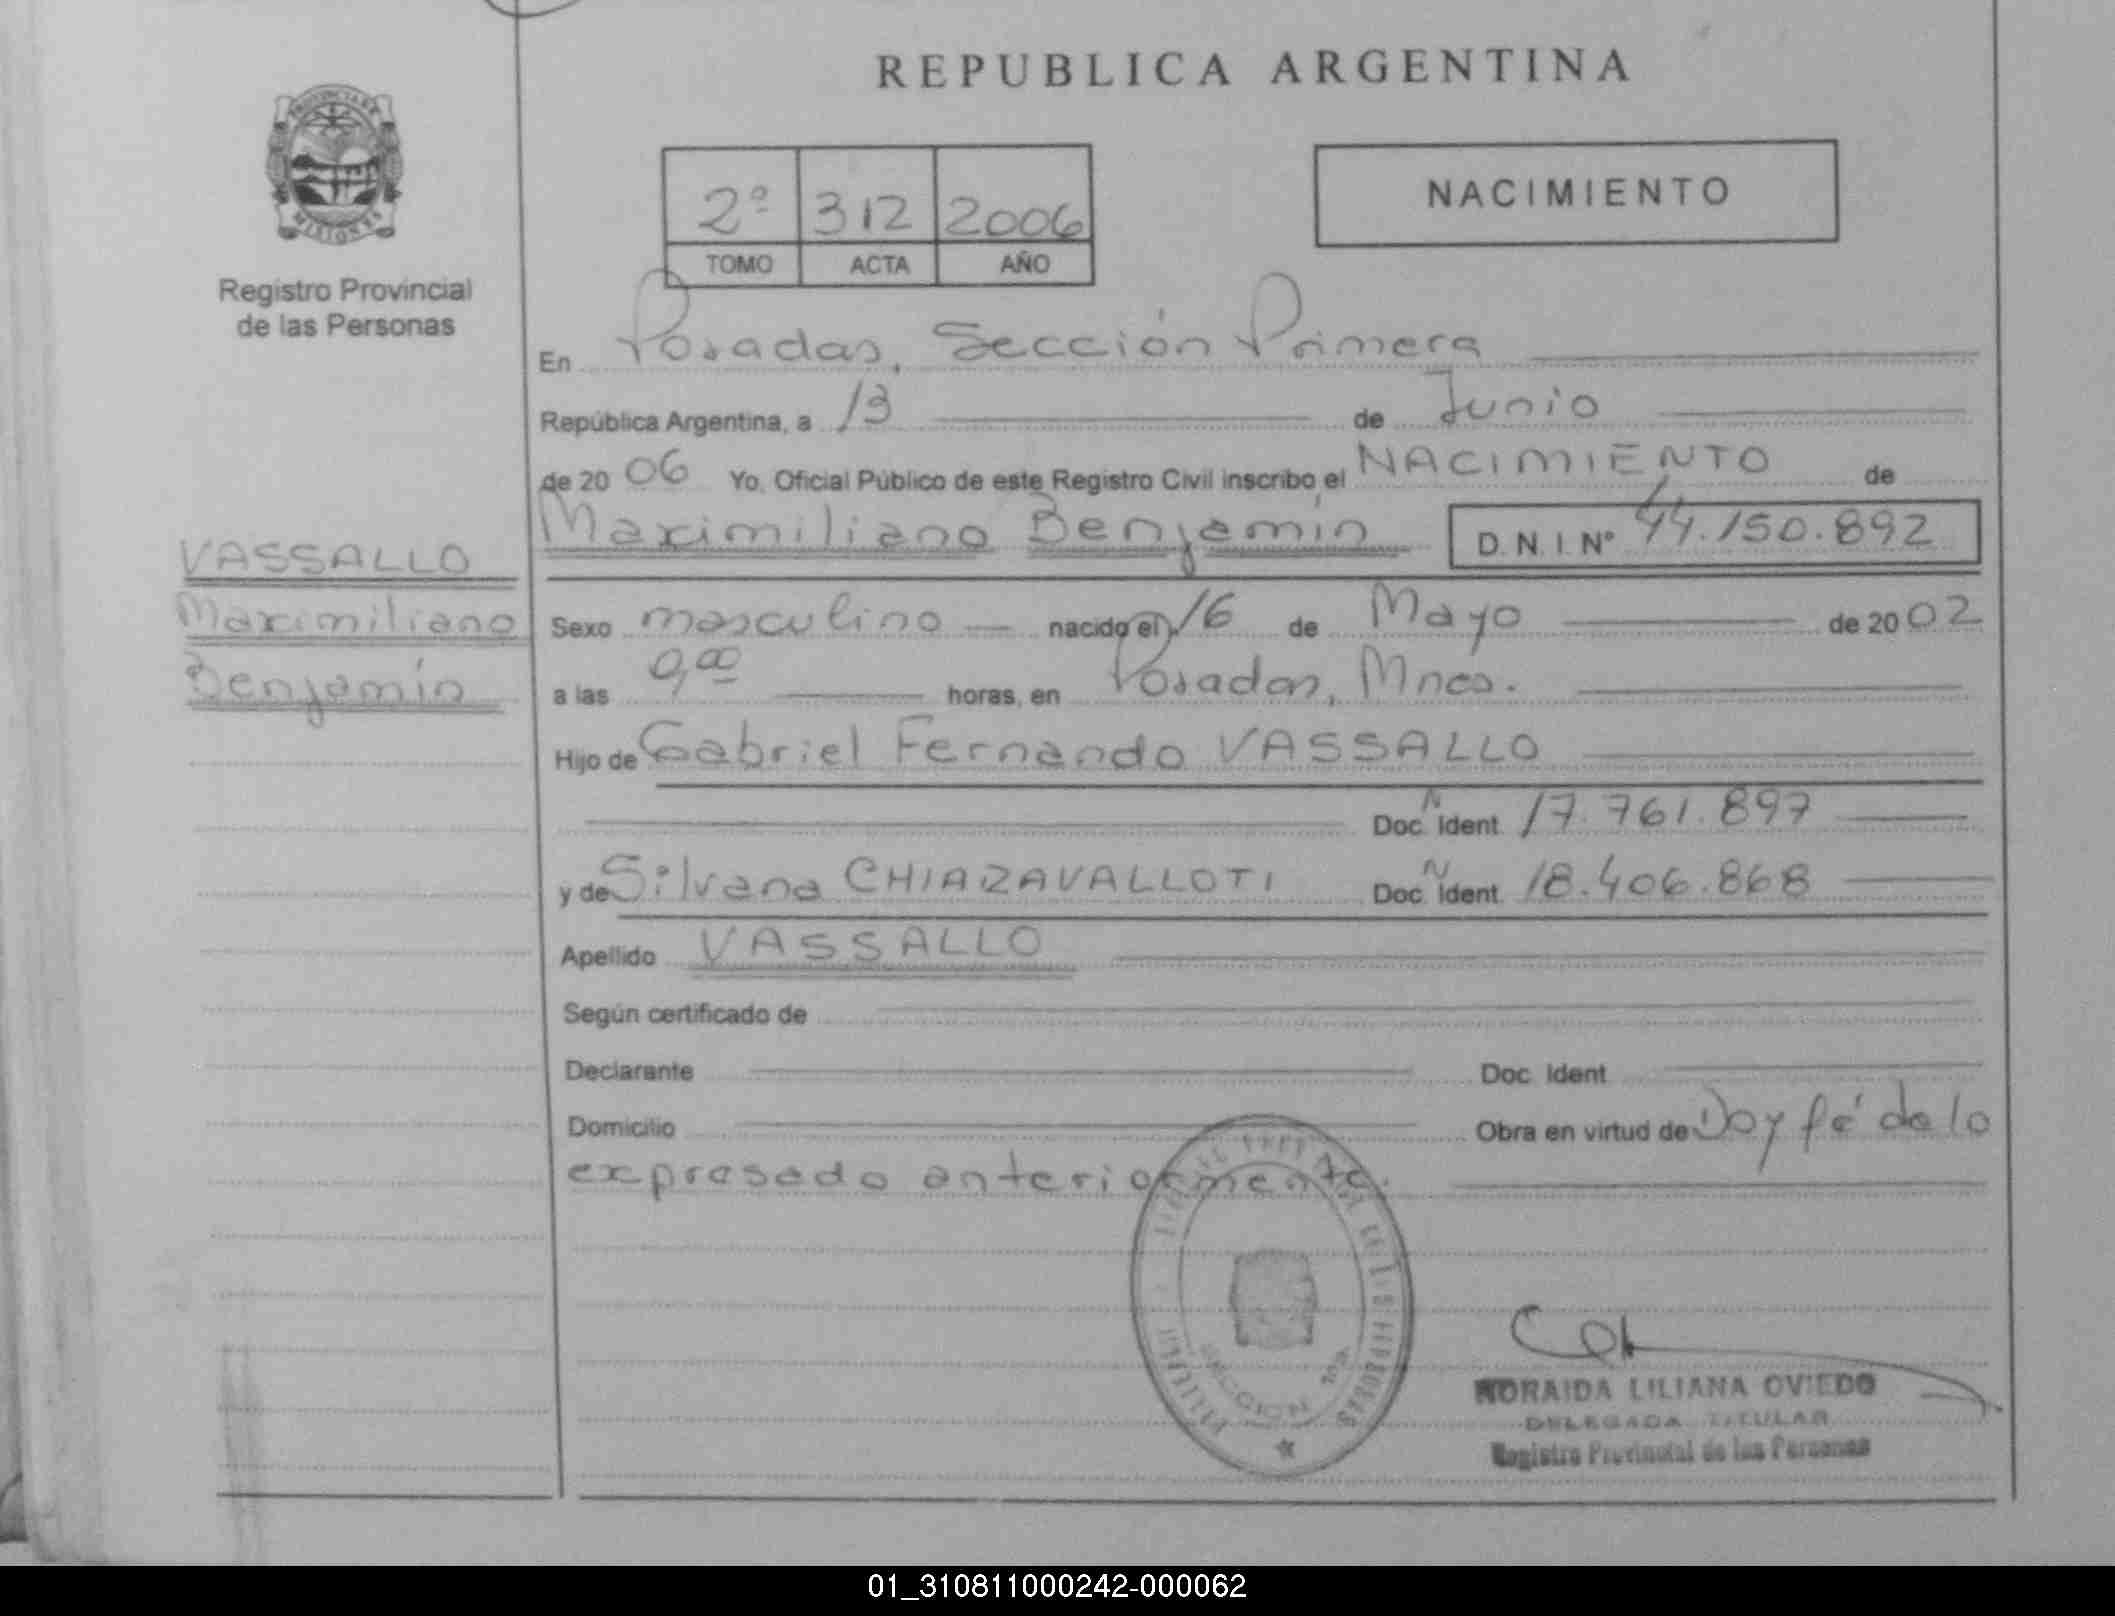 REPUBLICA ARGENTINA
PROVINCIA DE
MISIONES
Registro Provincial
de las Personas
2º 312 2006
TOMO ACTA AÑO
NACIMIENTO
En Posadas, Sección Primera
República Argentina, a 13 de Junio
de 20 06 Yo, Oficial Público de este Registro Civil inscribo el NACIMIENTO de
Maximiliano Benjamín D.N.I. Nº 44.150.892
VASSALLO
Maximiliano
Benjamín
Sexo masculino nacido el 16 de Mayo de 20 02
a las 9,00 horas, en Posadas, Mnes.
Hijo de Gabriel Fernando VASSALLO
Doc. N Ident. 17.761.897
y de Silvana CHIARAVALLOTI Doc. N Ident. 18.406.868
Apellido VASSALLO
Según certificado de
Declarante Doc. Ident.
Domicilio Obra en virtud de Doy fé de lo
expresado anteriormente.
SECCION 1RA
NORAIDA LILIANA OVIEDO
DELEGADA TITULAR
Registro Provincial de las Personas
01_310811000242-000062